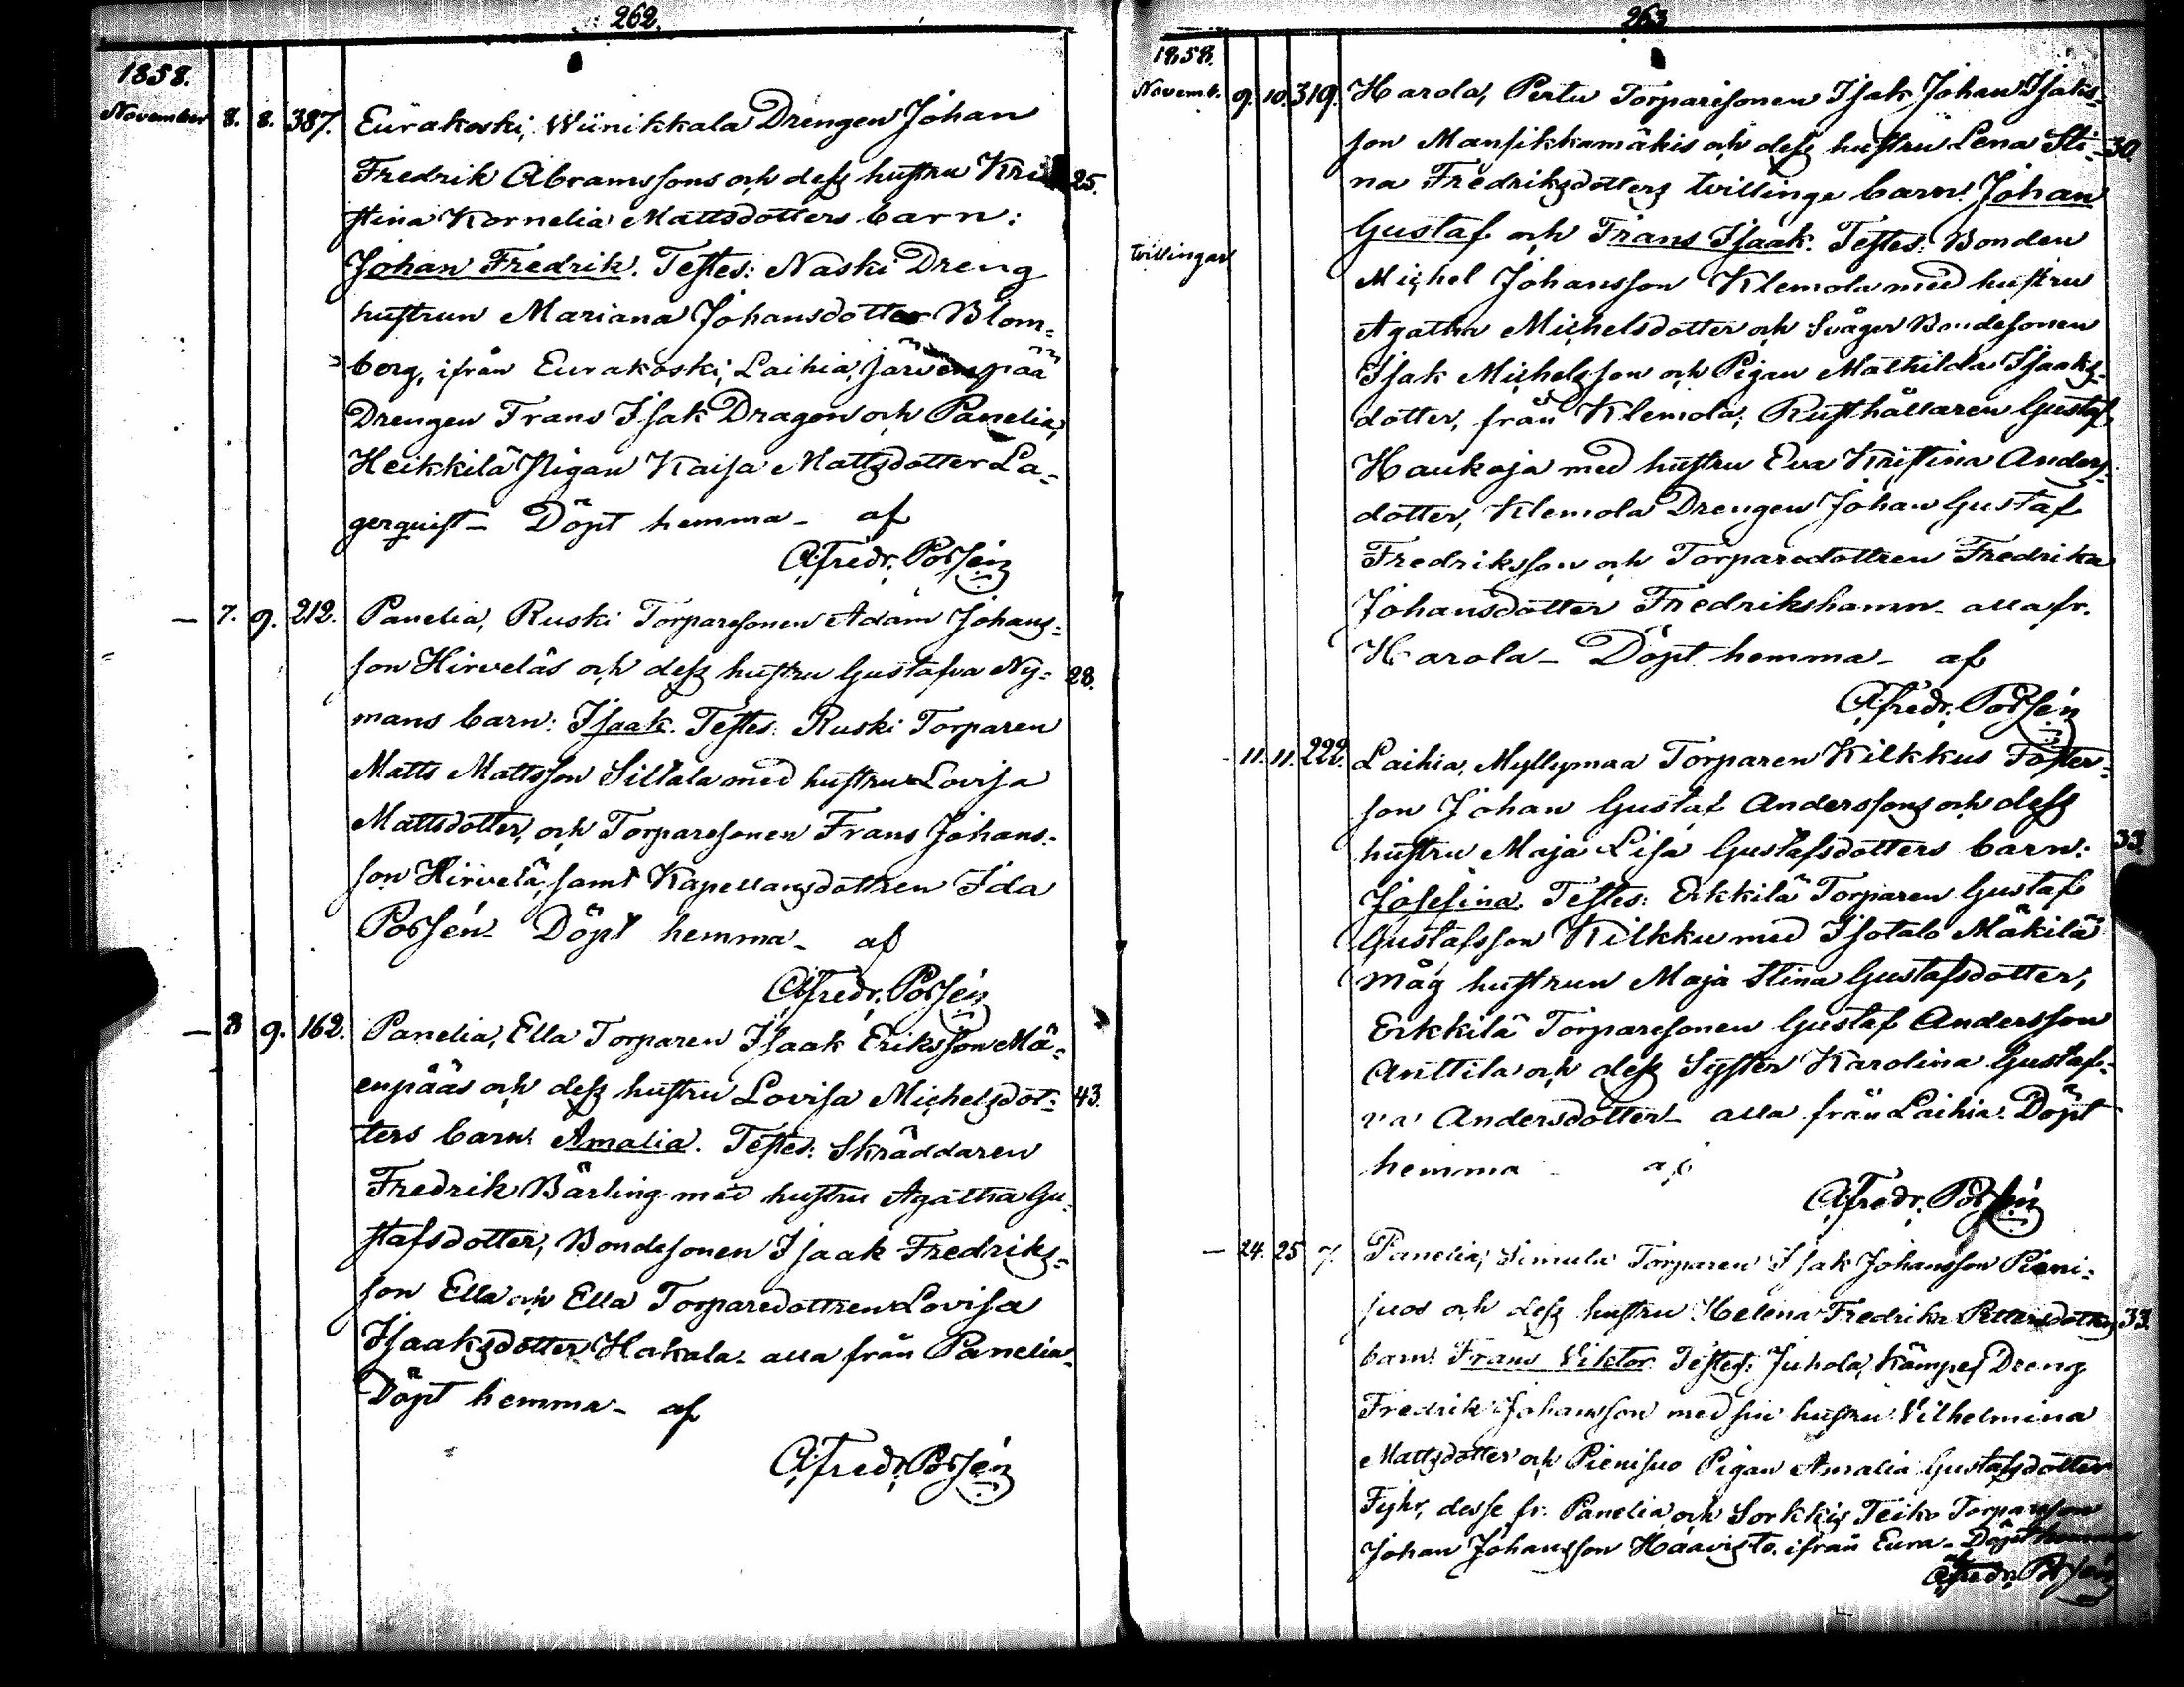 262.
1858.
November 8. 8. 387. Eurakoski, Wiinikkala Drengen Johan
Fredrik Abramssons och dess hustru Kri 25.
stina Kornelia Mattsdotters barn:
Johan Fredrik. Testes: Naski Dreng
hustrun Mariana Johansdotter Blom=
berg, ifrån Eurakoski, Laihia, Järvenpää
Drengen Frans Isak Dragon och Panelia,
Heikkilä Pigan Kaisa Mattsdotter La=
gerquist – Döpt hemma – af
A. Fredr. Porsén
— 7. 9. 212. Panelia, Ruski Torparesonen Adam Johans=
son Hirveläs och dess hustru Gustafva Ny= 28.
mans barn: Isaak. Testes: Ruski Torparen
Matts Mattsson Sillala med hustru Lovisa
Mattsdotter, och Torparesonen Frans Johans=
son Hirvelä, samt Kapellansdottren Ida
Porsén – Döpt hemma – af
A. Fredr. Porsén
— 8 9. 162. Panelia, Ella Torparen Isaak Eriksson Mä=
enpääs och dess hustru Lovisa Michelsdot= 43.
ters barn: Amalia. Testes: Skräddaren
Fredrik Bärling med hustru Agatha Gu=
stafsdotter, Bondesonen Isaak Fredriks=
son Ella och Ella Torparedottren Lovisa
Isaaksdotter Hakala – alla från Panelia –
Döpt hemma – af
A. Fredr. Porsén
263
1858.
Novemb. 9. 10. 319. Harola, Pertu Torparesonen Isak Johan Isaks=
son Mansikkamäkis och dess hustru Lena Sti= 30.
na Fredriksdotters tvillinge barn: Johan
tvillingar Gustaf och Frans Isaak. Testes: Bonden
Michel Johansson Klemola med hustru
Agatha Michelsdotter och Svåger Bondesonen
Isak Michelsson och Pigan Mathilda Isaaks=
dotter, från Klemola; Rusthållaren Gustaf
Haukoja med hustru Eva Kristina Anders=
dotter, Klemola Drengen Johan Gustaf
Fredriksson och Torparedottren Fredrika
Johansdotter Fredrikshamn – alla fr.
Harola – Döpt hemma – af
A. Fredr. Porsén
- 11. 11. 222. Laihia, Myllymaa Torparen Kilkkus Foster=
son Johan Gustaf Anderssons och dess
hustru Maja Lisa Gustafsdotters barn: 33.
Josefina. Testes: Erkkilä Torparen Gustaf
Gustafsson Kilkku med Isotalo Mäkilä
måg hustrun Maja Stina Gustafsdotter,
Erkkilä Torparesonen Gustaf Andersson
Anttila och dess Syster Karolina Gustaf=
va Andersdotter – alla från Laihia. Döpt
hemma af
A. Fredr. Porsén
— 24. 25 7. Panelia, Simula Torparen Isak Johansson Pieni=
suos och dess hustru Helena Fredrika Pettersdotters 33.
barn: Frans Viktor. Testes: Juhola, Kämpes Dreng
Fredrik Johansson med sin hustru Vilhelmina
Mattsdotter och Pienisuo Pigan Amalia Gustafsdotter
Fyhr, desse fr. Panelia och Sorkkis Teiko Torpareson
Johan Johansson Haavisto. ifrån Eura – Döpt hemma
af A. Fredr. Porsén